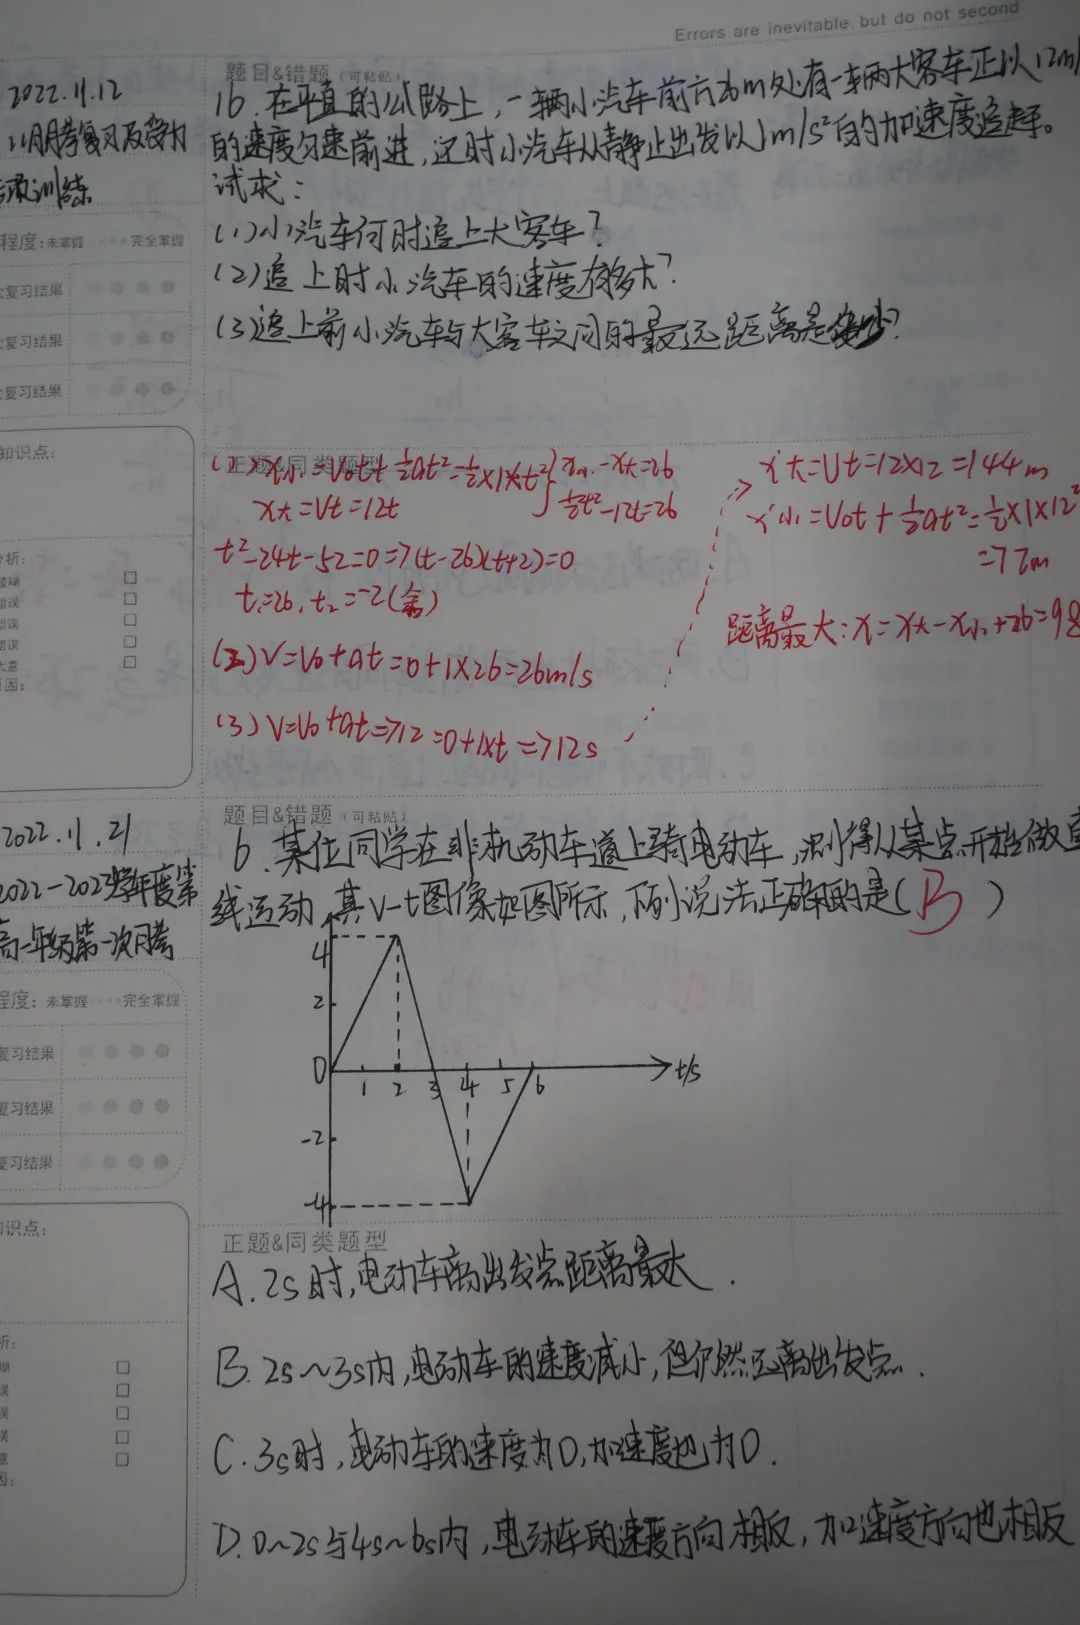 Errors are inevitable, but do not second
2022.11.12
11月月考复习及受力
训练
程度：未掌握 完全掌握
复习结果
复习结果
复习结果
知识点：
分析：
模糊
错误
错误
错误
大意
原因：
题目&错题（可粘贴）
16.在平直的公路上，一辆小汽车前方26m处有一辆大客车正以12m/
的速度匀速前进，这时小汽车从静止出发以1m/s²的加速度追赶。
试求：
(1)小汽车何时追上大客车？
(2)追上时小汽车的速度有多大？
(3)追上前小汽车与大客车之间的最远距离是多少？
正题&同类题型
(1)x小=V₀t+½at²=½×1×t² } x小-x大=26
x大=Vt=12t ½t²-12t=26
t²-24t-52=0=>(t-26)(t+2)=0
t₁=26,t₂=-2(舍)
(2)V=V₀+at=0+1×26=26m/s
(3)V=V₀+at=>12=0+1×t=>12s
x'大=Vt=12×12=144m
x'小=V₀t+½at²=½×1×12²
=72m
距离最大:x=x大-x小+26=98
2022.11.21
2022-2023学年度第
高一年级第一次月考
程度：未掌握 完全掌握
复习结果
复习结果
复习结果
知识点：
析：
糊
误
误
误
意
因：
题目&错题（可粘贴）
6.某位同学在非机动车道上骑电动车,测得从某点开始做直
线运动,其v-t图像如图所示,下列说法正确的是(B)
4
2
0 1 2 3 4 5 6 t/s
-2
-4
正题&同类题型
A.2s时,电动车离出发点距离最大.
B.2s~3s内,电动车的速度减小,但仍然远离出发点.
C.3s时,电动车的速度为0,加速度也为0.
D.0~2s与4s~6s内,电动车的速度方向相反,加速度方向也相反